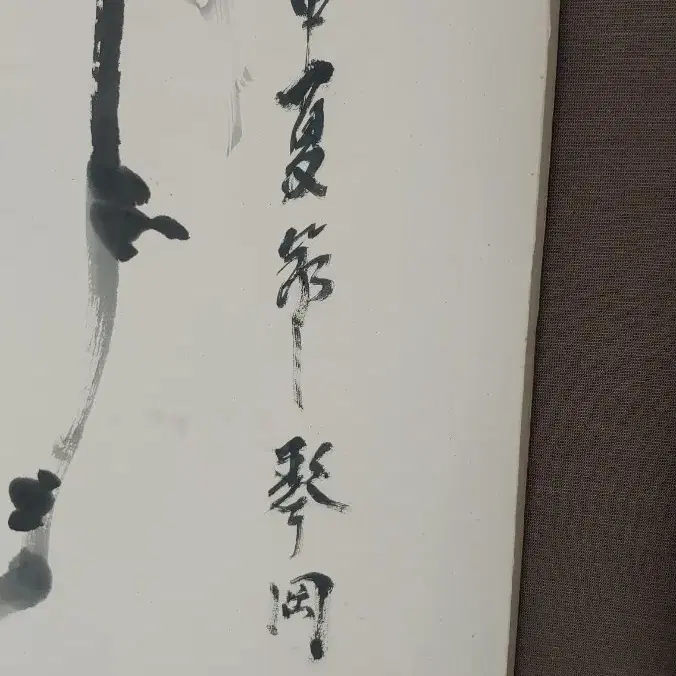 夏節琴岡